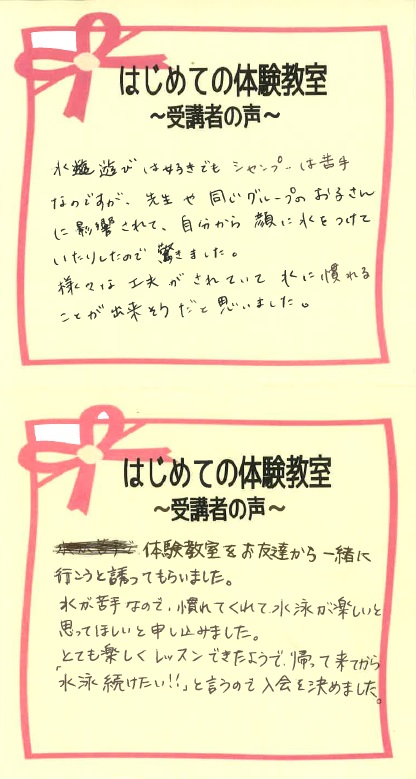 はじめての体験教室
～受講者の声～
水遊び は好きでも シャンプーは苦手
なのですが、先生や同じグループのお子さん
に影響されて、自分から顔に水をつけて
いたりしたので驚きました。
様々な工夫がされていて水に慣れる
ことが出来そうだと思いました。
はじめての体験教室
～受講者の声～
体験教室をお友達から一緒に
行こうと誘ってもらいました。
水が苦手なので、慣れてくれて水泳が楽しいと
思ってほしいと申し込みました。
とても楽しくレッスンできたようで、帰って来てから
「水泳続けたい!!」と言うので入会を決めました。